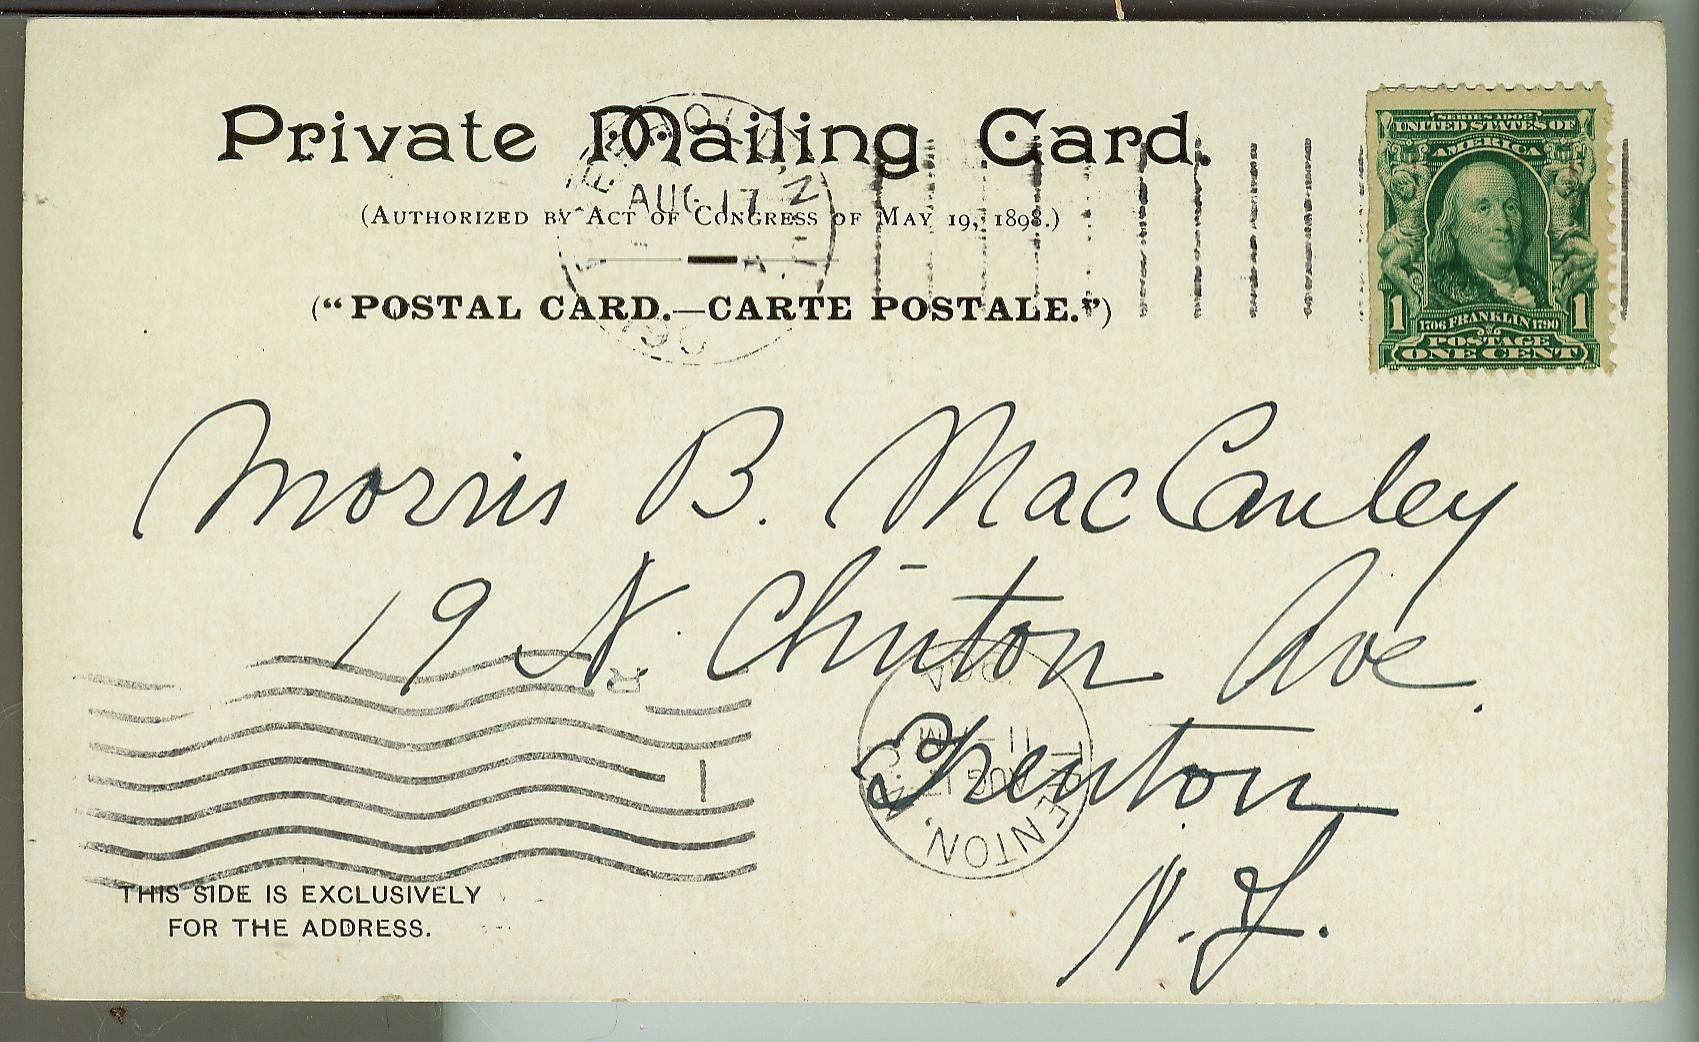 Private Mailing Card.
(Authorized by Act of Congress of May 19, 1898.)
AUG 17
("POSTAL CARD.—CARTE POSTALE.")
SERIES 1902
UNITED STATES OF
AMERICA
1 1706 FRANKLIN 1790 1
POSTAGE
ONE CENT
Morris B. MacCauley
19 N. Clinton Ave.
Trenton
N. J.
R
1
TRENTON, N.J.
AUG 17
11-
THIS SIDE IS EXCLUSIVELY
FOR THE ADDRESS.